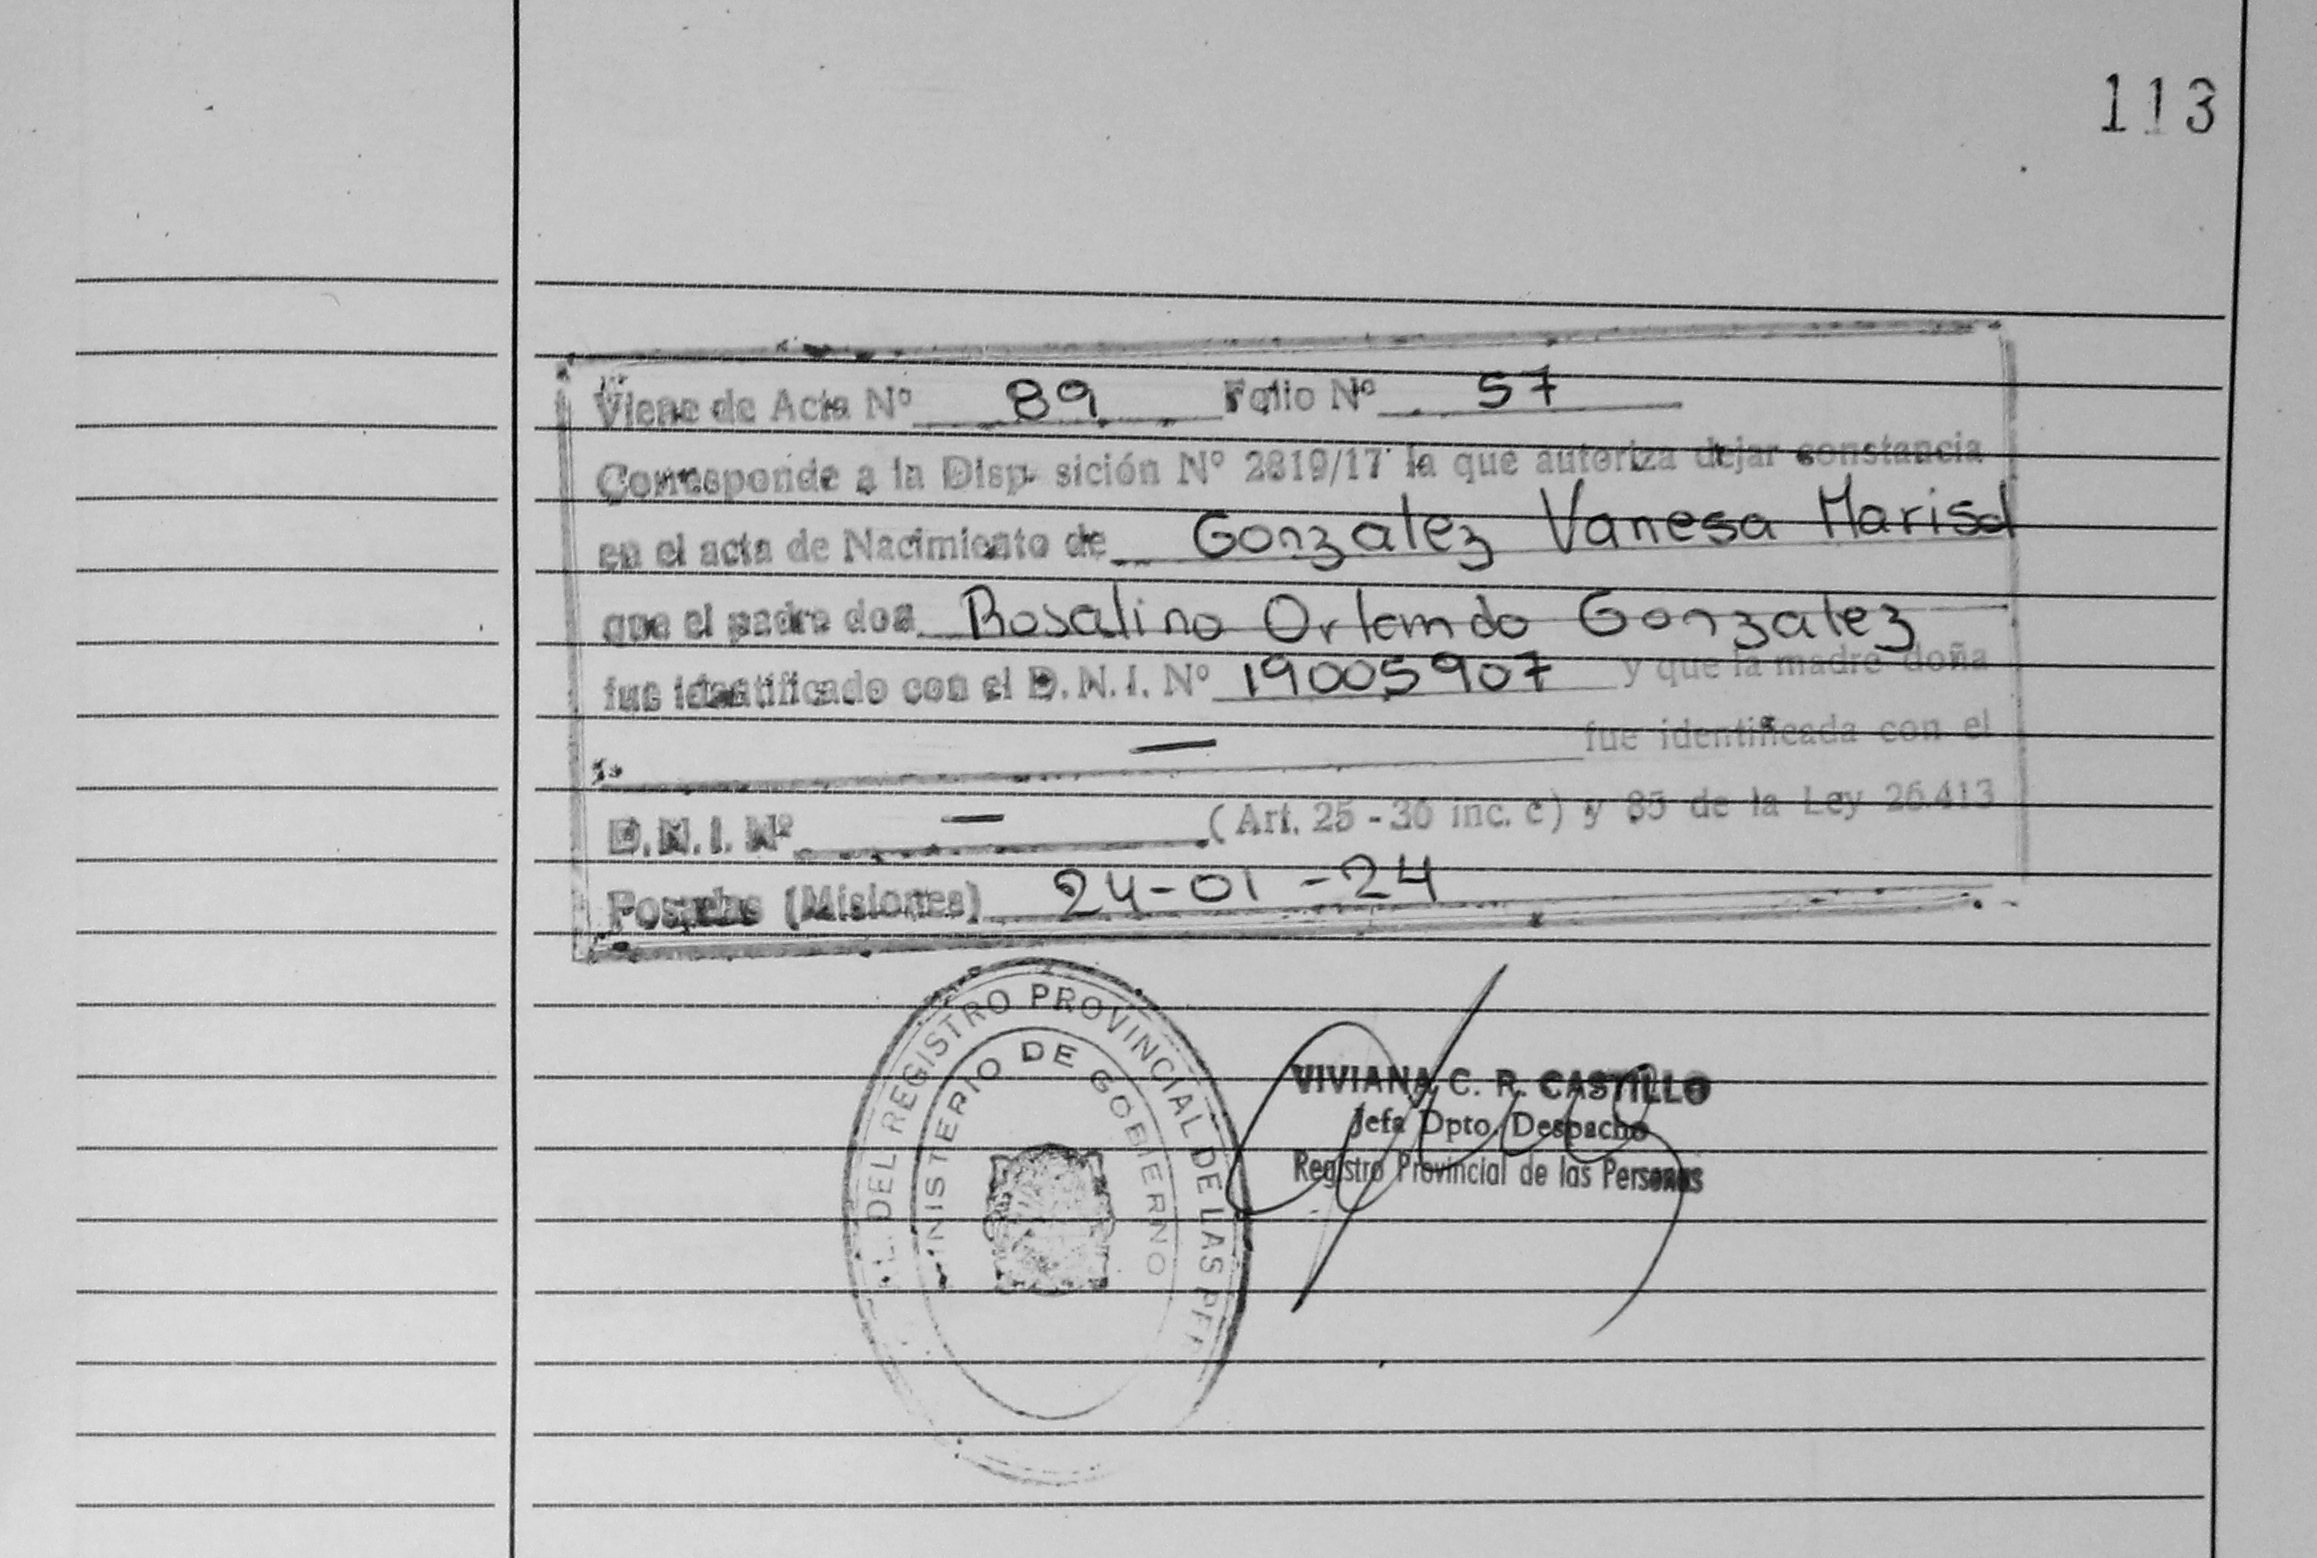 113
Viene de Acta Nº 89 Folio Nº 57
Corresponde a la Disp sición Nº 2819/17 la que autoriza dejar constancia
en el acta de Nacimiento de Gonzalez Vanesa Marisol
que el padre don Rosalino Orlando Gonzalez
fue identificado con el D.N.I. Nº 19005907 y que la madre doña
— fue identificada con el
D.N.I. Nº — (Art. 25 - 36 inc. c) y 85 de la Ley 26.413
Posadas (Misiones) 24-01-24
L. DEL REGISTRO PROVINCIAL DE LAS PER
MINISTERIO DE GOBIERNO
VIVIANA C. R. CASTILLO
Jefa Dpto. Despacho
Registro Provincial de las Personas